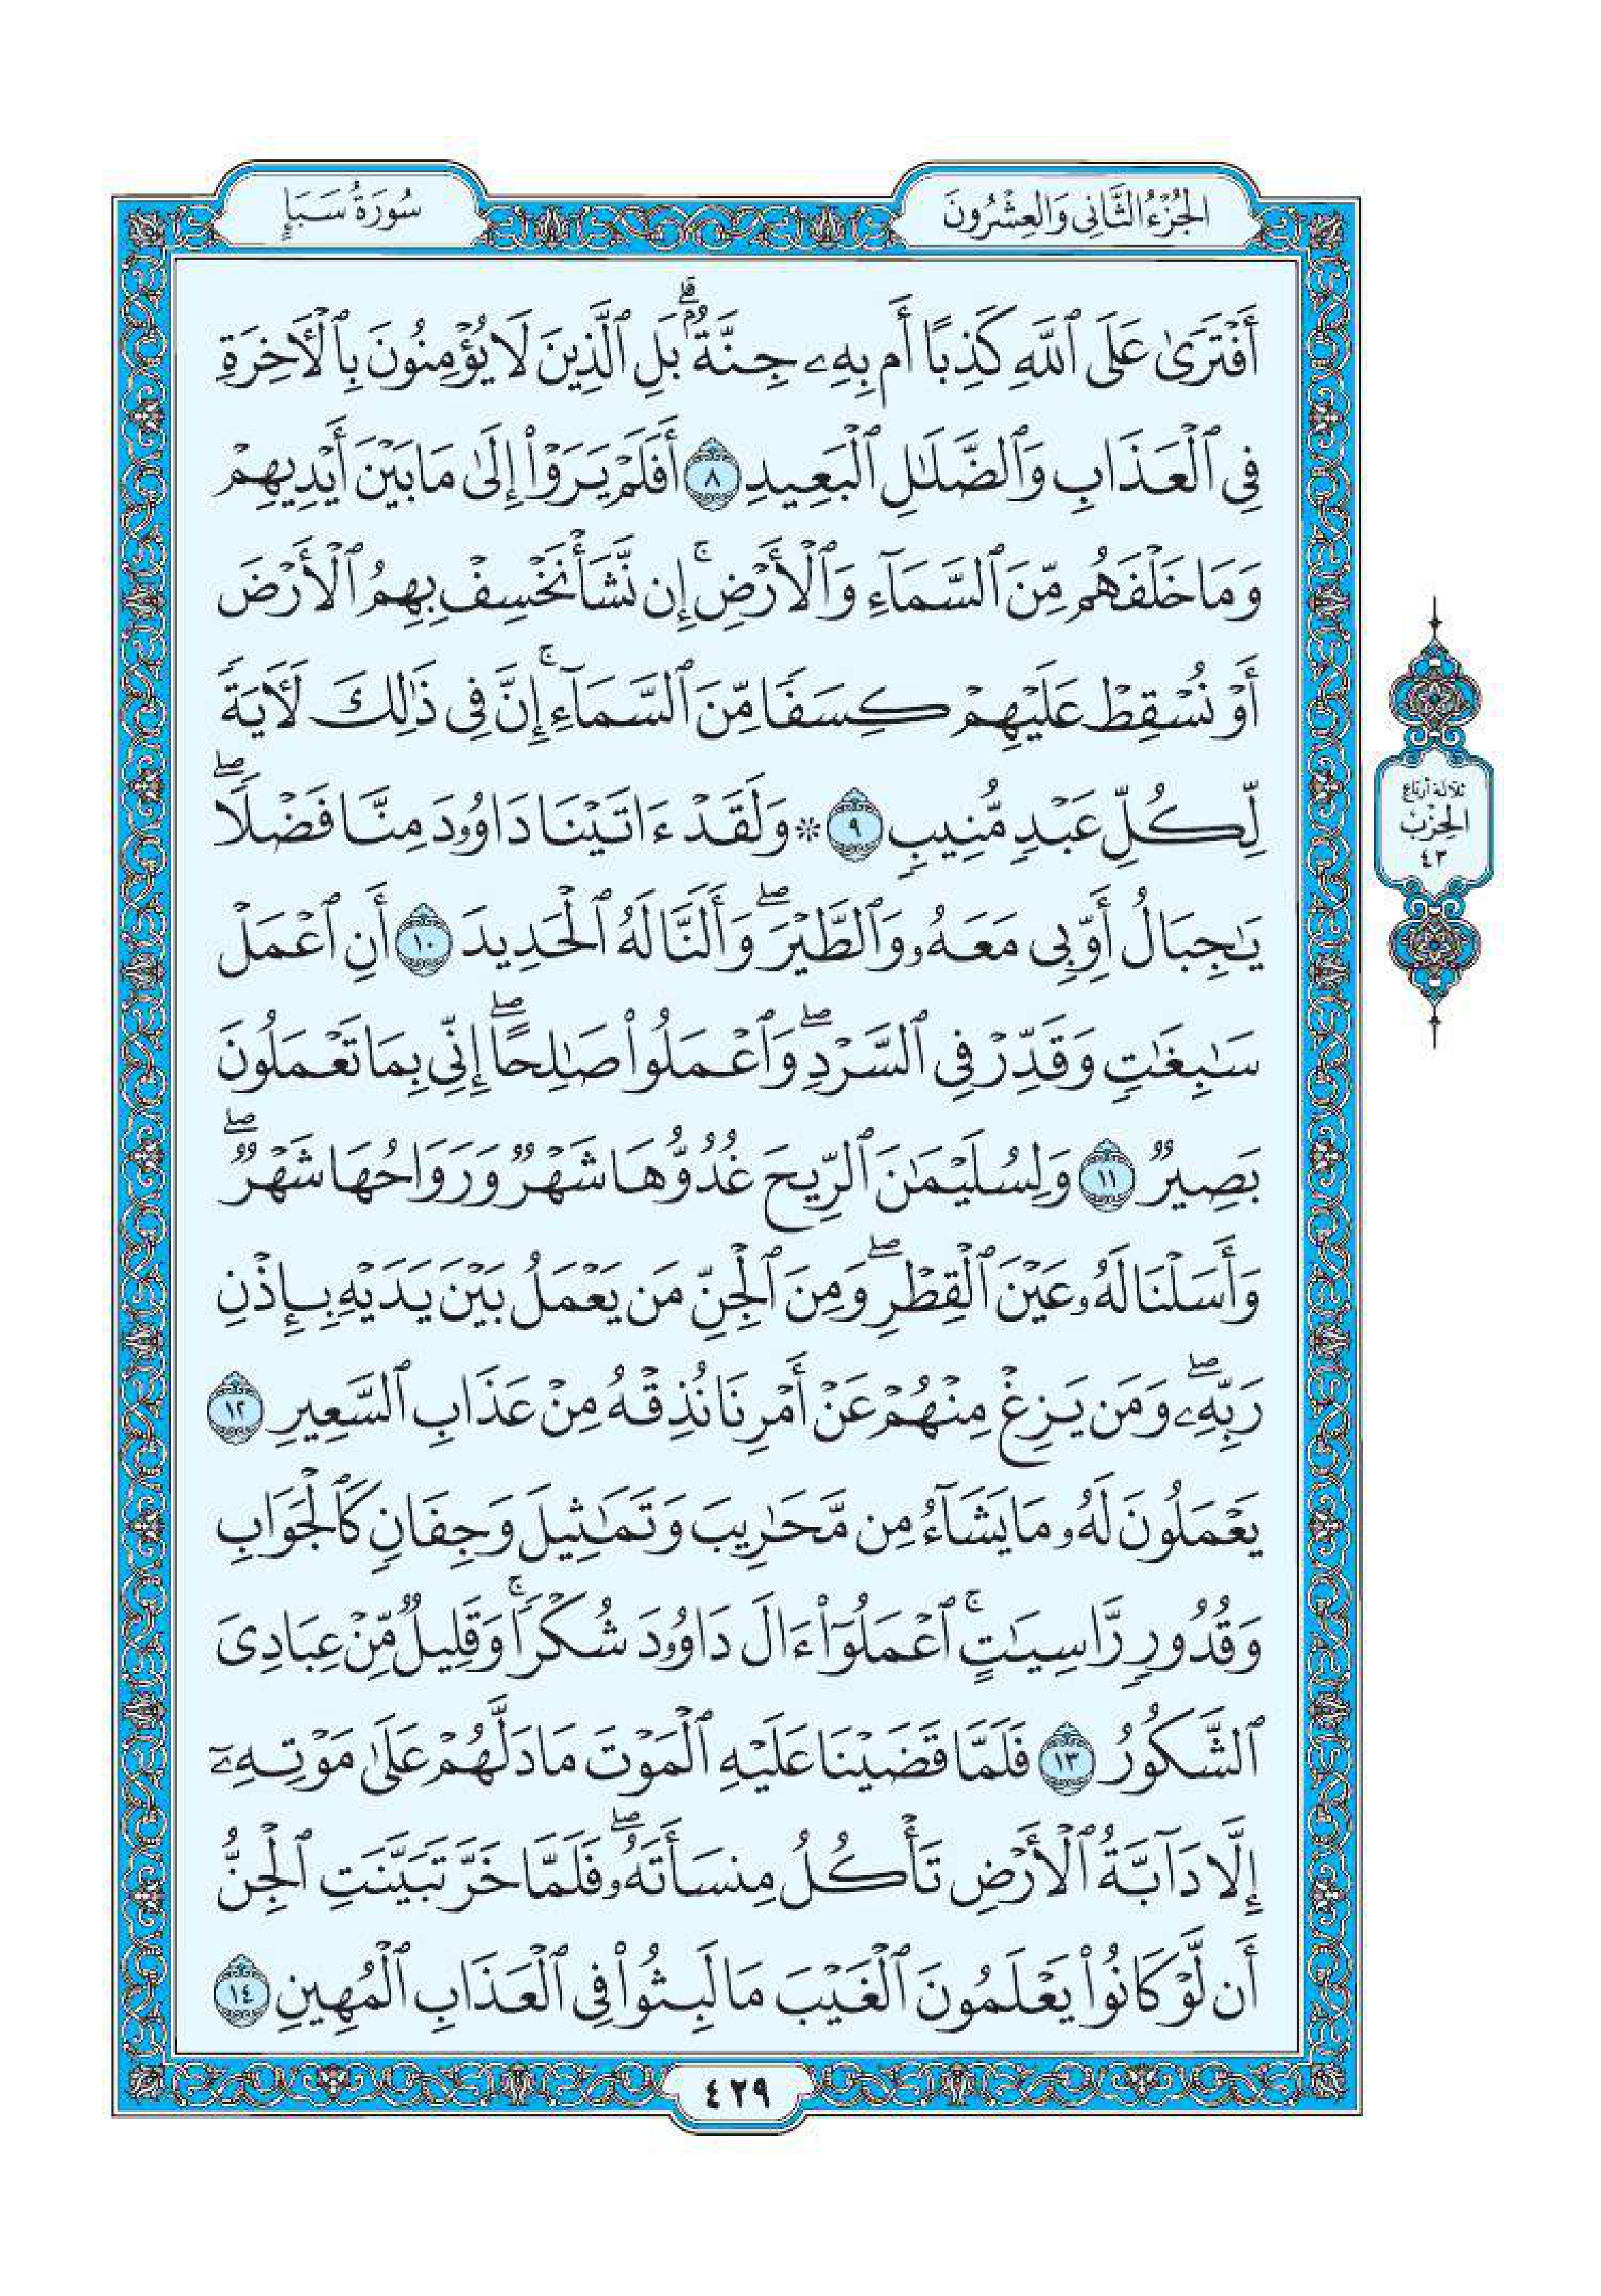 الجُزْءُ الثَّانِي وَالعِشْرُونَ
سُورَةُ سَبَإٍ
أَفْتَرَىٰ عَلَى ٱللَّهِ كَذِبًا أَم بِهِۦ جِنَّةٌۢ ۗ بَلِ ٱلَّذِينَ لَا يُؤْمِنُونَ بِٱلْأَخِرَةِ
فِى ٱلْعَذَابِ وَٱلضَّلَٰلِ ٱلْبَعِيدِ ٨ أَفَلَمْ يَرَوْا۟ إِلَىٰ مَا بَيْنَ أَيْدِيهِمْ
وَمَا خَلْفَهُم مِّنَ ٱلسَّمَآءِ وَٱلْأَرْضِ ۚ إِن نَّشَأْ نَخْسِفْ بِهِمُ ٱلْأَرْضَ
أَوْ نُسْقِطْ عَلَيْهِمْ كِسَفًا مِّنَ ٱلسَّمَآءِ ۚ إِنَّ فِى ذَٰلِكَ لَأٓيَةً
لِّكُلِّ عَبْدٍ مُّنِيبٍ ٩ ۞ وَلَقَدْ ءَاتَيْنَا دَاوُۥدَ مِنَّا فَضْلًا ۖ
يَٰجِبَالُ أَوِّبِى مَعَهُۥ وَٱلطَّيْرَ ۖ وَأَلَنَّا لَهُ ٱلْحَدِيدَ ١٠ أَنِ ٱعْمَلْ
سَٰبِغَٰتٍ وَقَدِّرْ فِى ٱلسَّرْدِ ۖ وَٱعْمَلُوا۟ صَٰلِحًا ۖ إِنِّى بِمَا تَعْمَلُونَ
بَصِيرٌ ١١ وَلِسُلَيْمَٰنَ ٱلرِّيحَ غُدُوُّهَا شَهْرٌ وَرَوَاحُهَا شَهْرٌ ۖ
وَأَسَلْنَا لَهُۥ عَيْنَ ٱلْقِطْرِ ۖ وَمِنَ ٱلْجِنِّ مَن يَعْمَلُ بَيْنَ يَدَيْهِ بِإِذْنِ
رَبِّهِۦ ۖ وَمَن يَزِغْ مِنْهُمْ عَنْ أَمْرِنَا نُذِقْهُ مِنْ عَذَابِ ٱلسَّعِيرِ ١٢
يَعْمَلُونَ لَهُۥ مَا يَشَآءُ مِن مَّحَٰرِيبَ وَتَمَٰثِيلَ وَجِفَانٍ كَٱلْجَوَابِ
وَقُدُورٍ رَّاسِيَٰتٍ ۚ ٱعْمَلُوٓا۟ ءَالَ دَاوُۥدَ شُكْرًا ۚ وَقَلِيلٌ مِّنْ عِبَادِىَ
ٱلشَّكُورُ ١٣ فَلَمَّا قَضَيْنَا عَلَيْهِ ٱلْمَوْتَ مَا دَلَّهُمْ عَلَىٰ مَوْتِهِۦٓ
إِلَّا دَآبَّةُ ٱلْأَرْضِ تَأْكُلُ مِنسَأَتَهُۥ ۖ فَلَمَّا خَرَّ تَبَيَّنَتِ ٱلْجِنُّ
أَن لَّوْ كَانُوا۟ يَعْلَمُونَ ٱلْغَيْبَ مَا لَبِثُوا۟ فِى ٱلْعَذَابِ ٱلْمُهِينِ ١٤
ثلاثة أرباع
الحِزْب
٤٣
٤٢٩